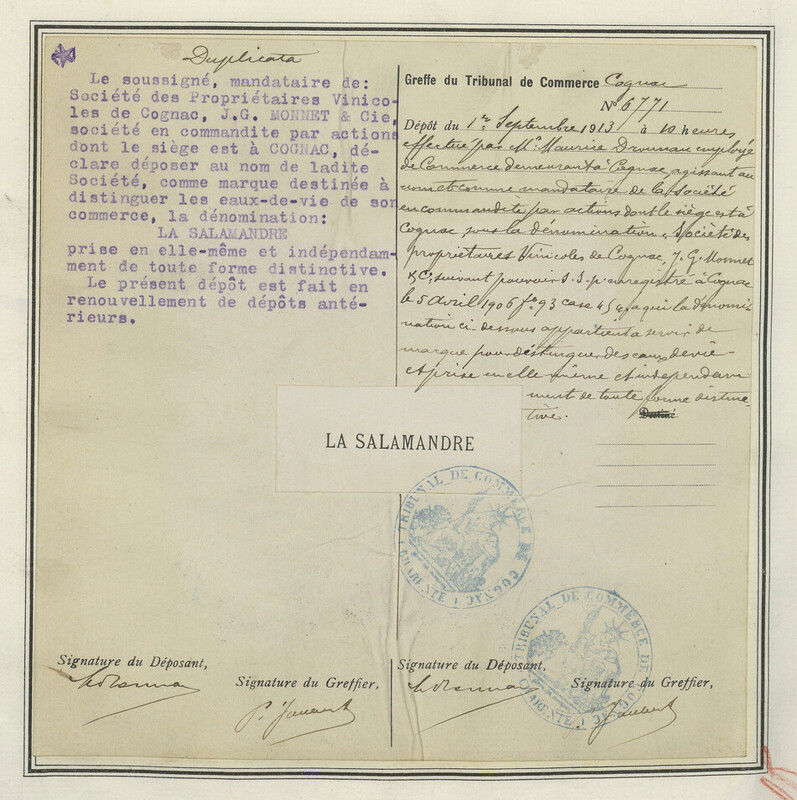 Duplicata
Le soussigné, mandataire de:
Société des Propriétaires Vinico-
les de Cognac, J.G. MONNET & Cie,
société en commandite par actions
dont le siège est à COGNAC, dé-
clare déposer au nom de ladite
Société, comme marque destinée à
distinguer les eaux-de-vie de son
commerce, la dénomination:
LA SALAMANDRE
prise en elle-même et indépendam-
ment de toute forme distinctive.
Le présent dépôt est fait en
renouvellement de dépôts anté-
rieurs.
Greffe du Tribunal de Commerce Cognac
N° 6771
Dépôt du 1er Septembre 1913 à 10 heures
effectué par Mr. Maurice employé
de Commerce demeurant à Cognac, agissant au
nom et comme mandataire de la Société
en commandite par actions dont le siège est à
Cognac sous la dénomination "Société des
propriétaires Vinicoles de Cognac, J. G. Monnet
& Cie, suivant pouvoir S.S.P. enregistré à Cognac
le 5 Avril 1906 fo 93 case 454, a qui la dénomi
nation ci-dessous appartient a servir de
marque pour distinguer des eaux de vie
et prise en elle même et independam-
ment de toute forme distinc-
tive. Destiné
LA SALAMANDRE
TRIBUNAL DE COMMERCE DE COGNAC
CHARENTE
TRIBUNAL DE COMMERCE DE COGNAC
CHARENTE
Signature du Déposant,
Signature du Greffier,
Signature du Déposant,
Signature du Greffier,